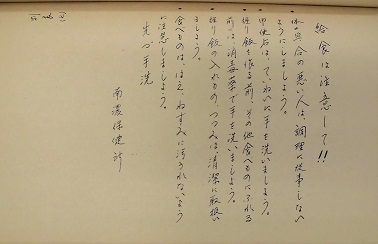 給食は注意して!!
・体の具合の悪い人は、調理に従事しない
ようにしましょう。
・甲使后は、ていねいに手を洗いましょう。
・握り飯を作る前、その他食べものにふれる
前には消毒薬で手を洗いましょう。
・握り飯の入れもの、つつみは清潔に取扱い
ましょう。
・食べものは、はえ、ねずみに汚されないよう
に注意しましょう。
先づ手洗
南濃保健所